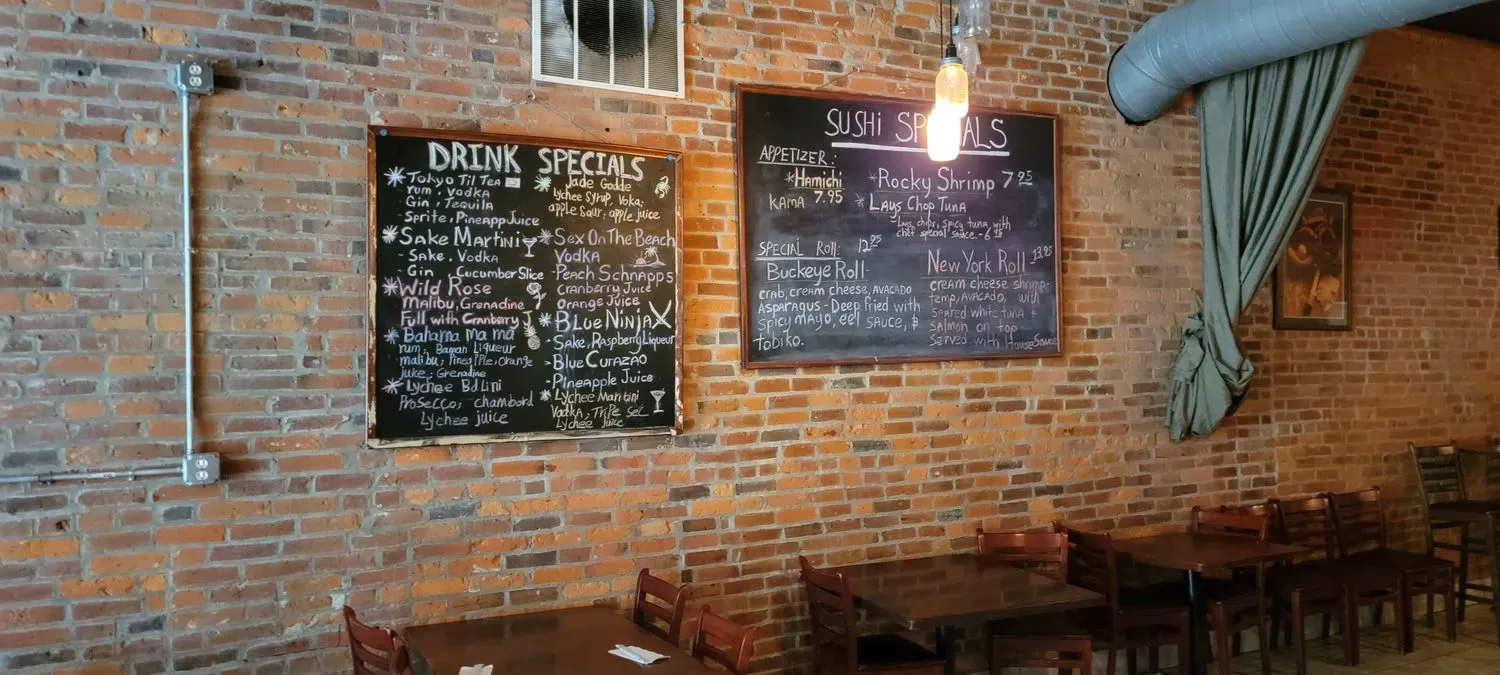 DRINK SPECIALS
*Tokyo Til Tea
rum, Vodka
Gin, Tequila
- Sprite, Pineapp Juice
*Sake Martini
- Sake, Vodka
- Gin, Cucumber Slice
*Wild Rose
Malibu, Grenadine
Full with Cranberry J
*Bahama ma ma
rum, Banan Liqueur
malibu, Pineapple, orange
juice, Grenadine
*Lychee Bllini
Prosecco, chambord
Lychee juice
*Jade Godde
Lychee Syrup, Voka,
apple Sour, apple juice
*Sex On The Beach
Vodka
-Peach Schnapps
Cranberry Juice
orange Juice
*Blue Ninja
- Sake, Raspberry Liqueur
-Blue Curazao
-Pineapple Juice
*Lychee Maritini
Vodka, Triple Sec
Lychee juice
SUSHi SP ALS
APPETIZER:
*Hamichi
KAMA 7.95
*Rocky Shrimp 7.95
*Lays Chop Tuna
Lays chips, spicy tuna, with
chef special sauce - 6.95
SPECIAL Roll: 12.95
Buckeye Roll-
crab, cream cheese, AVACADO
Asparagus - Deep fried with
spicy mayo, eel sauce, &
tobiko.
New York Roll 13.95
cream cheese shrimp-
temp, AVACADO, with
Seared white tuna &
Salmon on top
Served with House Sauce